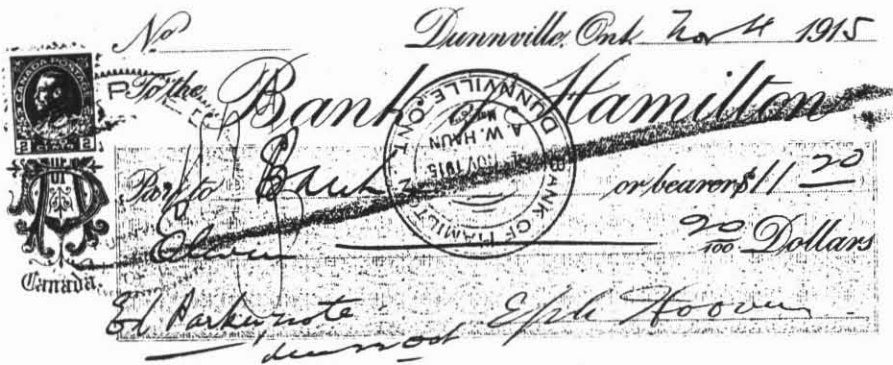 No Dunnville, Ont. Nov 4 1915
CANADA POSTAGE
2 CENTS 2
To the Bank of Hamilton
BANK OF HAMILTON
DUNNVILLE, ONT.
NOV 1915
A. W. HAUN
Pay to Bank or bearer $11 20
Eleven 20/100 Dollars
Canada.
Ed Parker note Eph Hoover